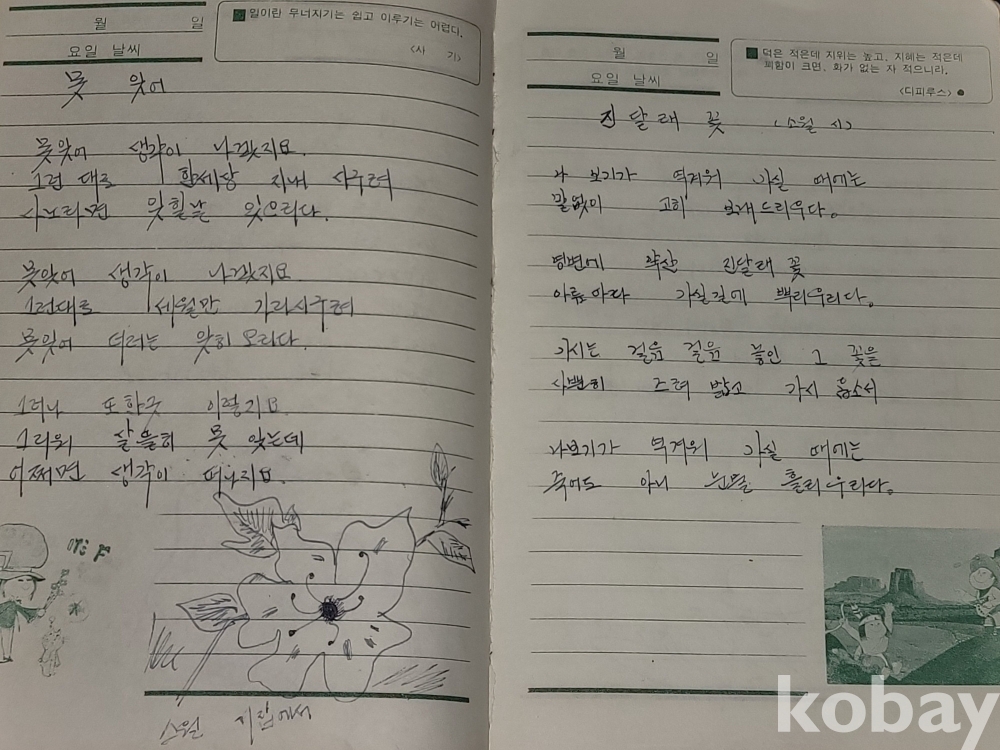 월 일
요일 날씨
일이란 무너지기는 쉽고 이루기는 어렵다.
<사 기>
못 잊어
못잊어 생각이 나겠지요.
그런 대로 한세상 지내 시구려
사노라면 잊힐날 있으리다.
못잊어 생각이 나겠지요
그런대로 세월만 가리시구려
못잊어 더러는 잊히 오리다.
그러나 또한긋 이렇지요
그리워 살뜰히 못 잊는데
어쩌면 생각이 떠나지요.
소월 시집에서
월 일
요일 날씨
덕은 적은데 지위는 높고, 지혜는 적은데
꾀함이 크면, 화가 없는 자 적으니라.
<디피루스>
진달래 꽃 (소월 시)
나 보기가 역겨워 가실 때에는
말없이 고히 보내 드리우다。
영변에 약산 진달래 꽃
아름 아다 가실길에 뿌리우리다。
가시는 걸음 걸음 놓인 그 꽃을
사뿐히 즈려 밟고 가시 옵소서
나보기가 역겨워 가실 때에는
죽어도 아니 눈물 흘리우리다。
kobay